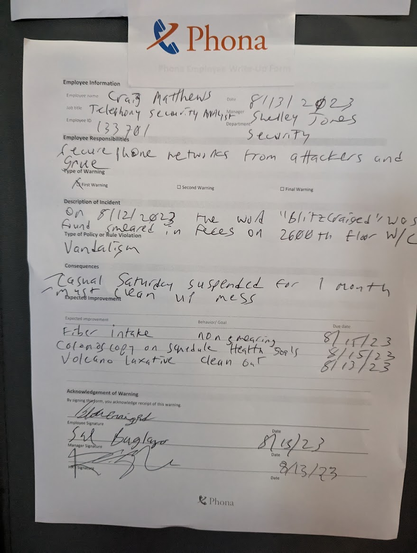 Phona
Phona Employee Write-Up Form
Employee Information
Employee name Craig Matthews Date 8/13/2023
Job title Telephony Security Analyst Manager Shelley Jones
Employee ID 133701 Department Security
Employee Responsibilities
Secure phone networks from attackers and
Grue
Type of Warning
X First Warning ☐ Second Warning ☐ Final Warning
Description of Incident
On 8/12/2023 the word "Blitzcraiged" was
found smeared in feces on 2600th floor W/C
Type of Policy or Rule Violation
Vandalism
Consequences
Casual Saturday suspended for 1 month
- Must clean up mess
Expected Improvement
Expected Improvement Behavior/Total Due Date
Fiber intake non smearing 8/15/23
Colonoscopy on schedule Health 8/15/23
Volcano laxative clean out 8/13/23
Acknowledgement of Warning
By signing this form, you acknowledge receipt of this warning.
Employee Signature Date
Sal 8/13/23
Manager Signature Date
8/13/23
Date
Phona